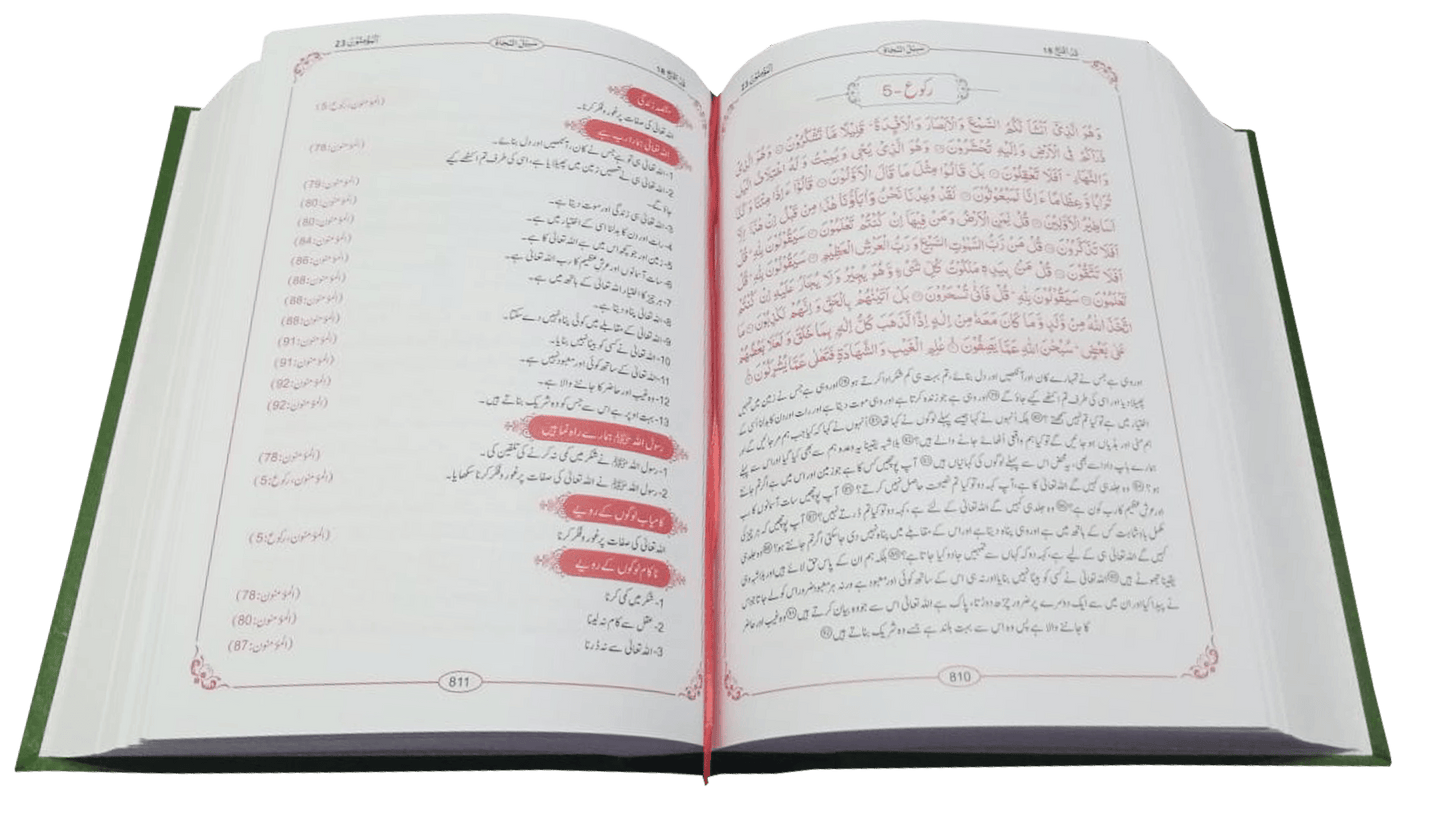 قد افلح 18
سبیل النجاۃ
المؤمنون 23
رکوع -5
وَهُوَ الَّذِیْۤ اَنْشَاَ لَكُمُ السَّمْعَ وَ الْاَبْصَارَ وَ الْاَفْـِٕدَةَ ؕ قَلِیْلًا مَّا تَشْكُرُوْنَ ﴿78﴾ وَ هُوَ الَّذِیْ
ذَرَاَكُمْ فِی الْاَرْضِ وَ اِلَیْهِ تُحْشَرُوْنَ ﴿79﴾ وَ هُوَ الَّذِیْ یُحْیٖ وَ یُمِیْتُ وَ لَهُ اخْتِلَافُ الَّیْلِ
وَ النَّهَارِ ؕ اَفَلَا تَعْقِلُوْنَ ﴿80﴾ بَلْ قَالُوْا مِثْلَ مَا قَالَ الْاَوَّلُوْنَ ﴿81﴾ قَالُوْۤا ءَاِذَا مِتْنَا وَ كُنَّا
تُرَابًا وَّ عِظَامًا ءَاِنَّا لَمَبْعُوْثُوْنَ ﴿82﴾ لَقَدْ وُعِدْنَا نَحْنُ وَ اٰبَآؤُنَا هٰذَا مِنْ قَبْلُ اِنْ هٰذَاۤ اِلَّاۤ
اَسَاطِیْرُ الْاَوَّلِیْنَ ﴿83﴾ قُلْ لِّمَنِ الْاَرْضُ وَ مَنْ فِیْهَاۤ اِنْ كُنْتُمْ تَعْلَمُوْنَ ﴿84﴾ سَیَقُوْلُوْنَ لِلّٰهِ ؕ قُلْ
اَفَلَا تَذَكَّرُوْنَ ﴿85﴾ قُلْ مَنْ رَّبُّ السَّمٰوٰتِ السَّبْعِ وَ رَبُّ الْعَرْشِ الْعَظِیْمِ ﴿86﴾ سَیَقُوْلُوْنَ لِلّٰهِ ؕ قُلْ
اَفَلَا تَتَّقُوْنَ ﴿87﴾ قُلْ مَنْۢ بِیَدِهٖ مَلَكُوْتُ كُلِّ شَیْءٍ وَّ هُوَ یُجِیْرُ وَ لَا یُجَارُ عَلَیْهِ اِنْ كُنْتُمْ
تَعْلَمُوْنَ ﴿88﴾ سَیَقُوْلُوْنَ لِلّٰهِ ؕ قُلْ فَاَنّٰى تُسْحَرُوْنَ ﴿89﴾ بَلْ اَتَیْنٰهُمْ بِالْحَقِّ وَ اِنَّهُمْ لَكٰذِبُوْنَ ﴿90﴾ مَا
اتَّخَذَ اللّٰهُ مِنْ وَّلَدٍ وَّ مَا كَانَ مَعَهٗ مِنْ اِلٰهٍ اِذًا لَّذَهَبَ كُلُّ اِلٰهٍۭ بِمَا خَلَقَ وَ لَعَلَا بَعْضُهُمْ
عَلٰى بَعْضٍ ؕ سُبْحٰنَ اللّٰهِ عَمَّا یَصِفُوْنَ ﴿91﴾ عٰلِمِ الْغَیْبِ وَ الشَّهَادَةِ فَتَعٰلٰى عَمَّا یُشْرِكُوْنَ ﴿92﴾
اور وہی ہے جس نے تمہارے کان اور آنکھیں اور دل بنائے، تم بہت ہی کم شکر ادا کرتے ہو اور وہی ہے جس نے زمین میں تمہیں
پھیلا دیا اور اسی کی طرف تم اکٹھے کیے جاؤ گے اور وہی ہے جو زندہ کرتا ہے اور وہی موت دیتا ہے اور رات اور دن کا بدلنا اُسی کے
اختیار میں ہے تو کیا تم نہیں سمجھتے؟ بلکہ اُنہوں نے کہا جیسے پہلے لوگوں نے کہا تھا اُنہوں نے کہا کہ کیا جب ہم مر جائیں گے اور
ہم مٹی اور ہڈیاں ہو جائیں گے تو کیا ہم واقعی اُٹھائے جانے والے ہیں؟ بلاشبہ یقیناً یہ وعدہ ہم سے بھی کیا گیا اور اس سے پہلے
ہمارے باپ دادا سے بھی، یہ محض اس سے پہلے لوگوں کی کہانیاں ہیں آپ پوچھیں کس کا ہے جو زمین اور اس میں ہے اگر تم جانتے
ہو؟ وہ جلد ہی کہیں گے اللہ تعالیٰ کا ہے، آپ کہہ دو تو کیا تم نصیحت حاصل نہیں کرتے؟ آپ پوچھیں سات آسمانوں کا رب
اور عرشِ عظیم کا رب کون ہے؟ وہ جلد ہی کہیں گے اللہ تعالیٰ کے لئے ہے، کہہ دو تو کیا تم ڈرتے نہیں؟ آپ پوچھیں کہ ہر چیز کی
مکمل بادشاہت کس کے ہاتھ میں ہے اور وہی پناہ دیتا ہے اور اس کے مقابلے میں پناہ نہیں دی جا سکتی اگر تم جانتے ہو؟ وہ جلد ہی
کہیں گے اللہ تعالیٰ ہی کے لیے ہے، کہہ دو کہ کہاں سے تمہیں جادو کیا جاتا ہے؟ بلکہ ہم ان کے پاس حق لائے ہیں اور بلاشبہ وہی
یقیناً جھوٹے ہیں اللہ تعالیٰ نے کسی کو بیٹا نہیں بنایا اور نہ ہی اس کے ساتھ کوئی اور معبود ہے ورنہ ہر معبود ضرور اس کو لے جاتا جو اس
نے پیدا کیا اور ان میں سے ایک دوسرے پر ضرور چڑھ دوڑتا، پاک ہے اللہ تعالیٰ اس سے جو وہ بیان کرتے ہیں وہ غیب اور حاضر
کا جاننے والا ہے پس وہ اس سے بہت بلند ہے جسے وہ شریک بناتے ہیں
810
قد افلح 18
سبیل النجاۃ
المؤمنون 23
مقصد زندگی
اللہ تعالیٰ کی صفات پر غور و فکر کرنا۔ (المؤمنون، رکوع:5)
اللہ تعالیٰ ہمارا رب ہے
1- اللہ تعالیٰ ہی تو ہے جس نے کان، آنکھیں اور دل بنائے۔ (المؤمنون:78)
2- اللہ تعالیٰ ہی نے تمہیں زمین میں پھیلایا ہے، اسی کی طرف تم اکٹھے کیے
جاؤ گے۔ (المؤمنون:79)
3- اللہ تعالیٰ ہی زندگی اور موت دیتا ہے۔ (المؤمنون:80)
4- رات اور دن کا بدلنا اسی کے اختیار میں ہے۔ (المؤمنون:80)
5- زمین اور جو کچھ اس میں ہے اللہ تعالیٰ کا ہے۔ (المؤمنون:84)
6- سات آسمانوں اور عرشِ عظیم کا رب اللہ تعالیٰ ہی ہے۔ (المؤمنون:86)
7- ہر چیز کا اختیار اللہ تعالیٰ کے ہاتھ میں ہے۔ (المؤمنون:88)
8- اللہ تعالیٰ پناہ دیتا ہے۔ (المؤمنون:88)
9- اللہ تعالیٰ کے مقابلے میں کوئی پناہ نہیں دے سکتا۔ (المؤمنون:88)
10- اللہ تعالیٰ نے کسی کو بیٹا نہیں بنایا۔ (المؤمنون:91)
11- اللہ تعالیٰ کے ساتھ کوئی اور معبود نہیں ہے۔ (المؤمنون:91)
12- وہ غیب اور حاضر کا جاننے والا ہے۔ (المؤمنون:92)
13- بہت اوپر ہے اس سے جس کو وہ شریک بناتے ہیں۔ (المؤمنون:92)
رسول اللہ ﷺ ہمارے راہ نما ہیں
1- رسول اللہ ﷺ نے شکر میں کمی نہ کرنے کی تلقین کی۔ (المؤمنون:78)
2- رسول اللہ ﷺ نے اللہ تعالیٰ کی صفات پر غور و فکر کرنا سکھایا۔ (المؤمنون، رکوع:5)
کامیاب لوگوں کے رویے
اللہ تعالیٰ کی صفات پر غور و فکر کرنا (المؤمنون، رکوع:5)
ناکام لوگوں کے رویے
1- شکر میں کمی کرنا (المؤمنون:78)
2- عقل سے کام نہ لینا (المؤمنون:80)
3- اللہ تعالیٰ سے نہ ڈرنا (المؤمنون:87)
811